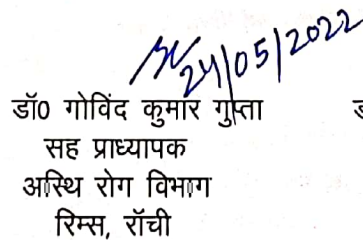 24/05/2022
डॉ0 गोविंद कुमार गुप्ता
सह प्राध्यापक
अस्थि रोग विभाग
रिम्स, राँची